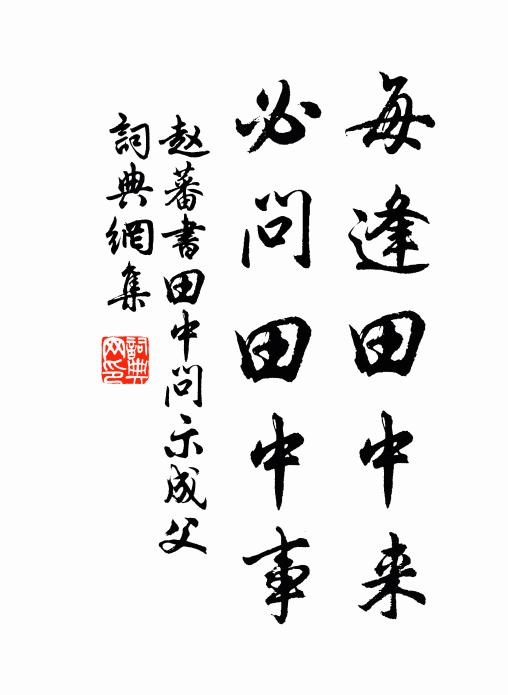 每逢田中来
必問田中事
赵蕃書田中問示成父
詞典網集
詞典
网印